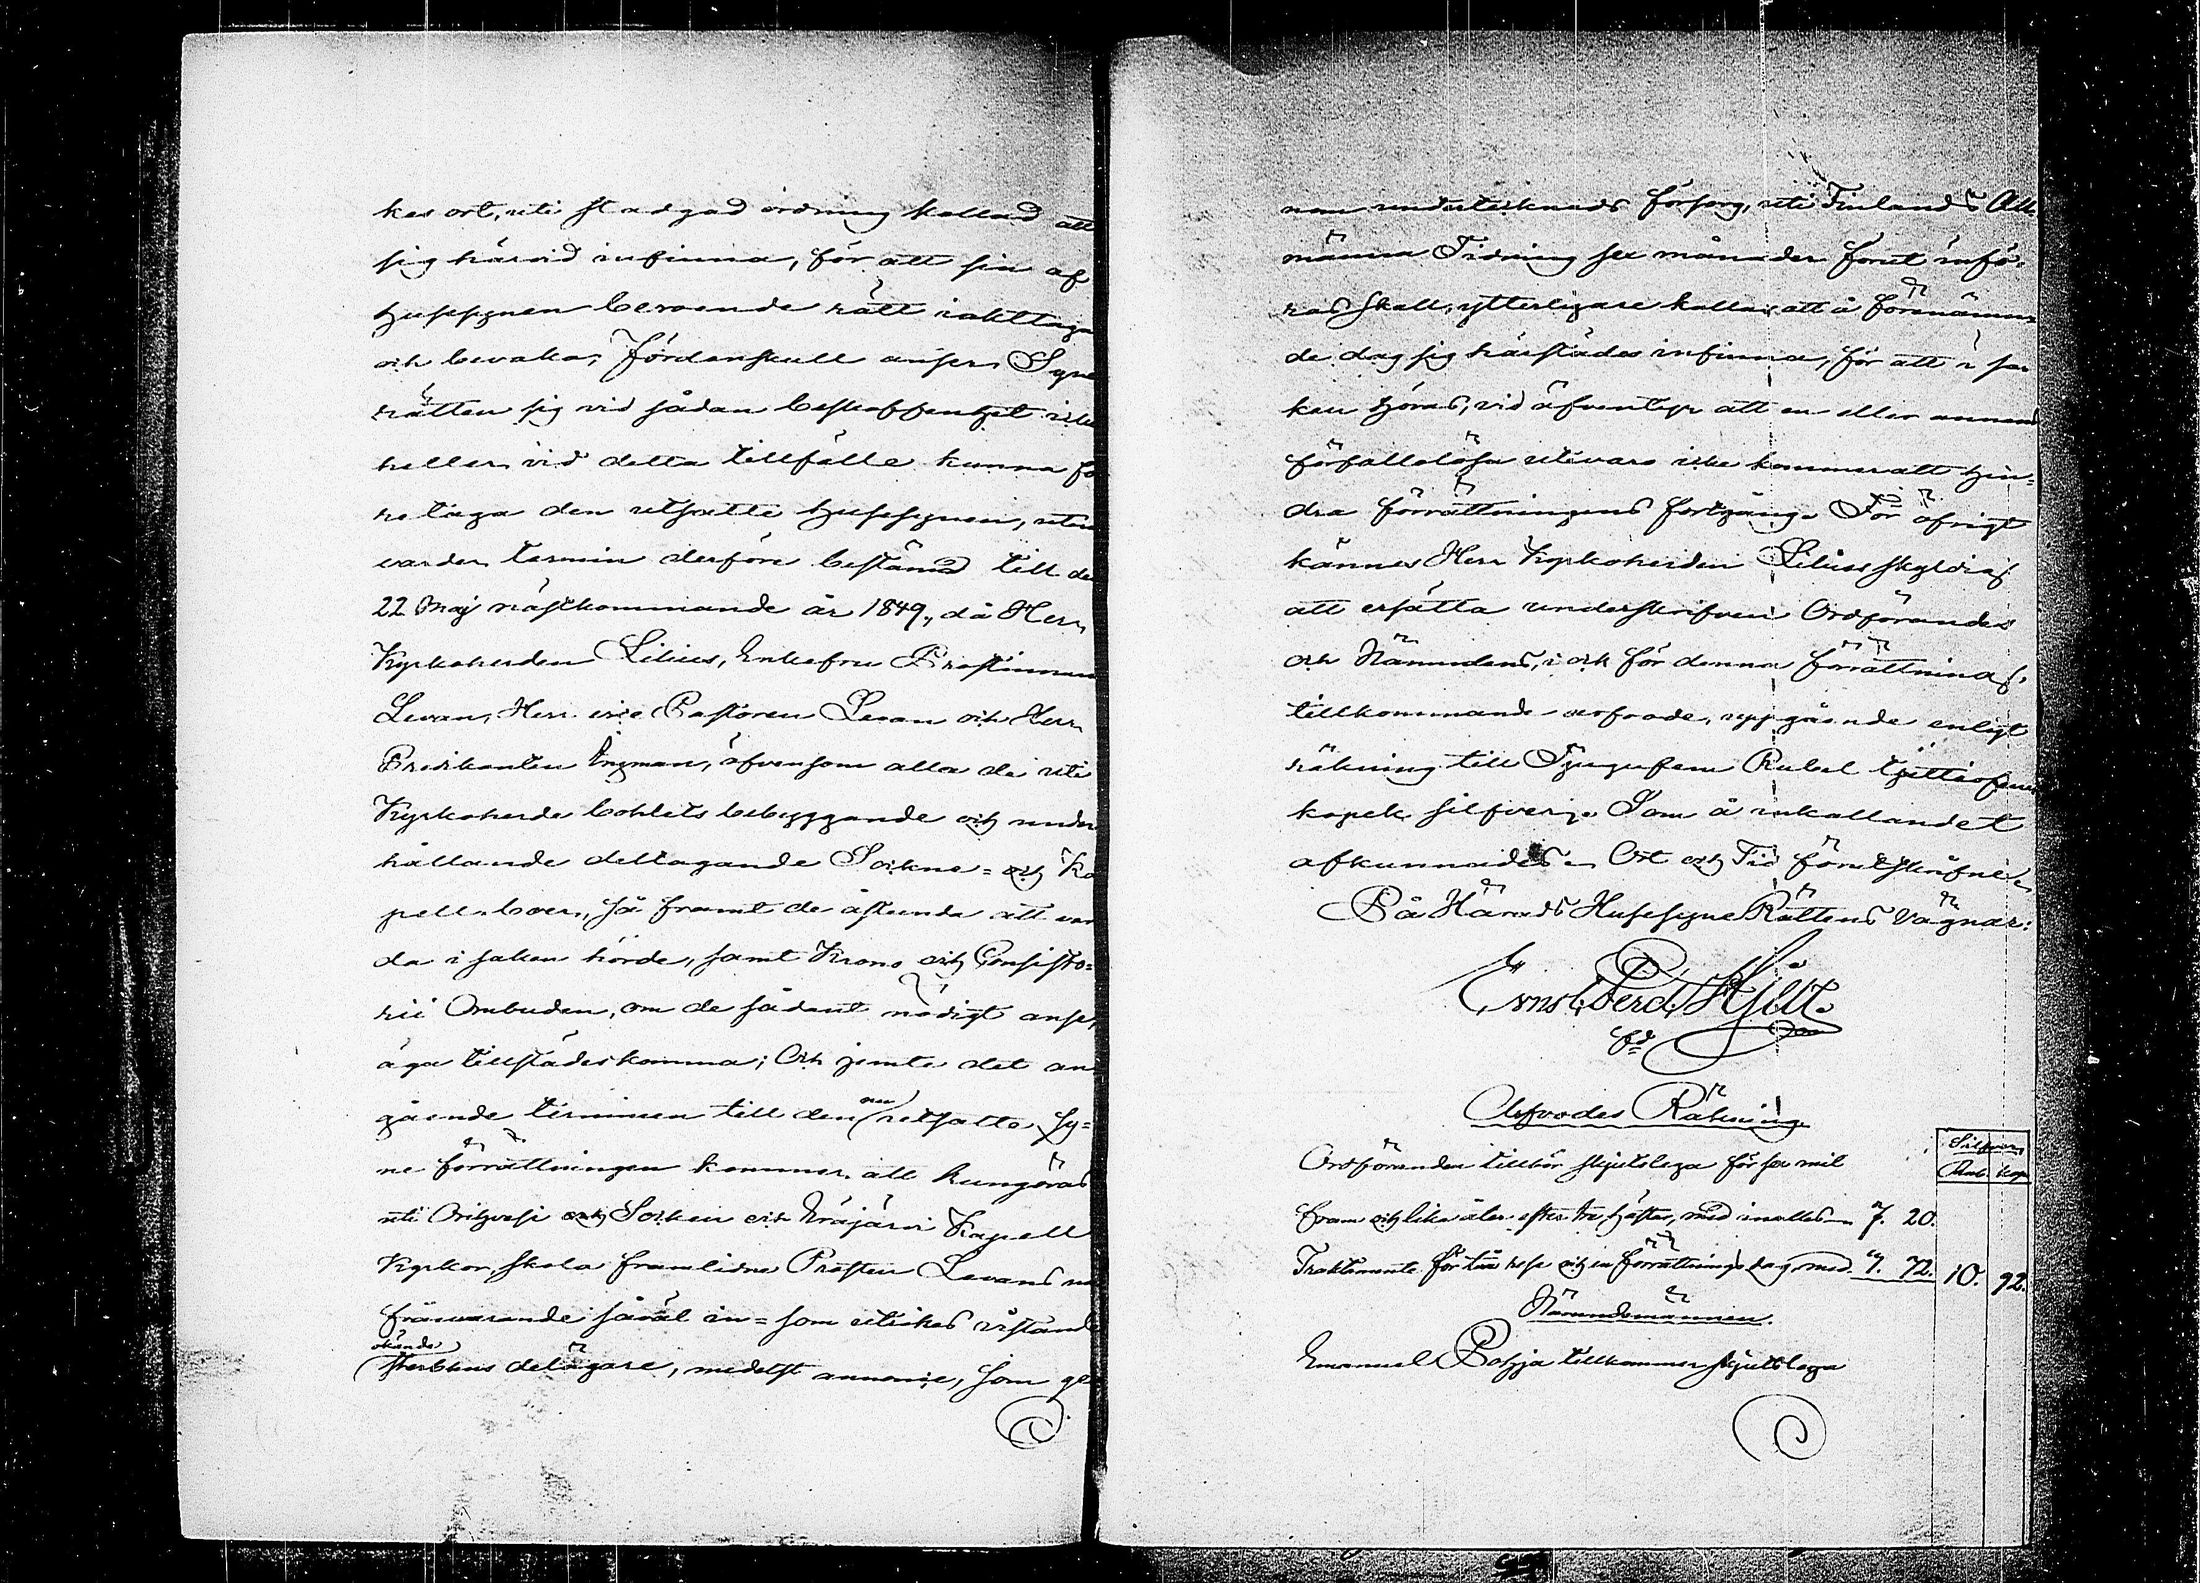 kes ort, uti stadgad ordning kallad att
sig härvid infinna, för att sin af
Husesynen beroende rätt iakttaga
och bevaka; Fördenskull anser Syne
rätten sig vid sådan beskaffenhet icke
heller vid detta tillfälle kunna fö
retaga den utsatte Husesynen, utan
varder termin derföre bestämd till den
22 Maj nästkommande år 1849, då Herr
Kyrkoherden Lilius, Enkefru Prostinnan
Levan, Herr vice Pastoren Levan och Herr
Predikanten Ingman, äfvensom alla de uti
Kyrkoherde bohlets bebyggande och under
hållande deltagande Sockne= och Ka
pell-boer, så framt de åstunda att var
da i saken hörde, samt Krono och Consisto=
rii Ombuden, om de sådant nödigt anse,
äga tillstädeskomma; Och jemte det an
gående terminen till den nu utsatte Sy=
ne förrättningen kommer att kungöras
uti Orihvesi Socken och Eräjärvi Kapell
Kyrkor, skola framlidne Prosten Levans
frånvarande såväl in= som utrikes vistande
okände
sterbhus delägare, medelst annonce, som ge
nom undertecknads försorg, uti Finlands All
männa Tidning sex månader förut infö=
ras skall, ytterligare kallas att å förenämn=
de dag sig härstädes infinna, för att i sa
ken höras, vid äfventyr att en eller annans
förfallolösa utevaro icke kommer att hin=
dra förrättningens fortgång. För öfrigt
kännes Herr Kyrkoherden Lilius skyldig
att ersätta underskrifven Ordförandes
och Nämndens, i och för denna förrättning
tillkommande arfvode, uppgående enligt
räkning till Tjugufem Rubel
kopek silfver. Som å inkallandet
afkunnades. Ort och Tid förutskrifne.
På Härads Husesyne Rättens vägnar:
Ernst Ferd. Hjelt.
Arfvodes Räkning
Silfver
Rub. Kop.
Ordföranden tillkör skjutslega för sex mil
fram och lika åter efter tre hästar, med inalles 7. 20.
Traktamente för två rese och en förrättnings dag med 3. 72. 10. 92.
Nämndemännen.
Emanuel Pohja tillkommer skjutslega